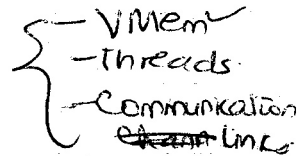 - VMem
- Threads.
- Communication
links.